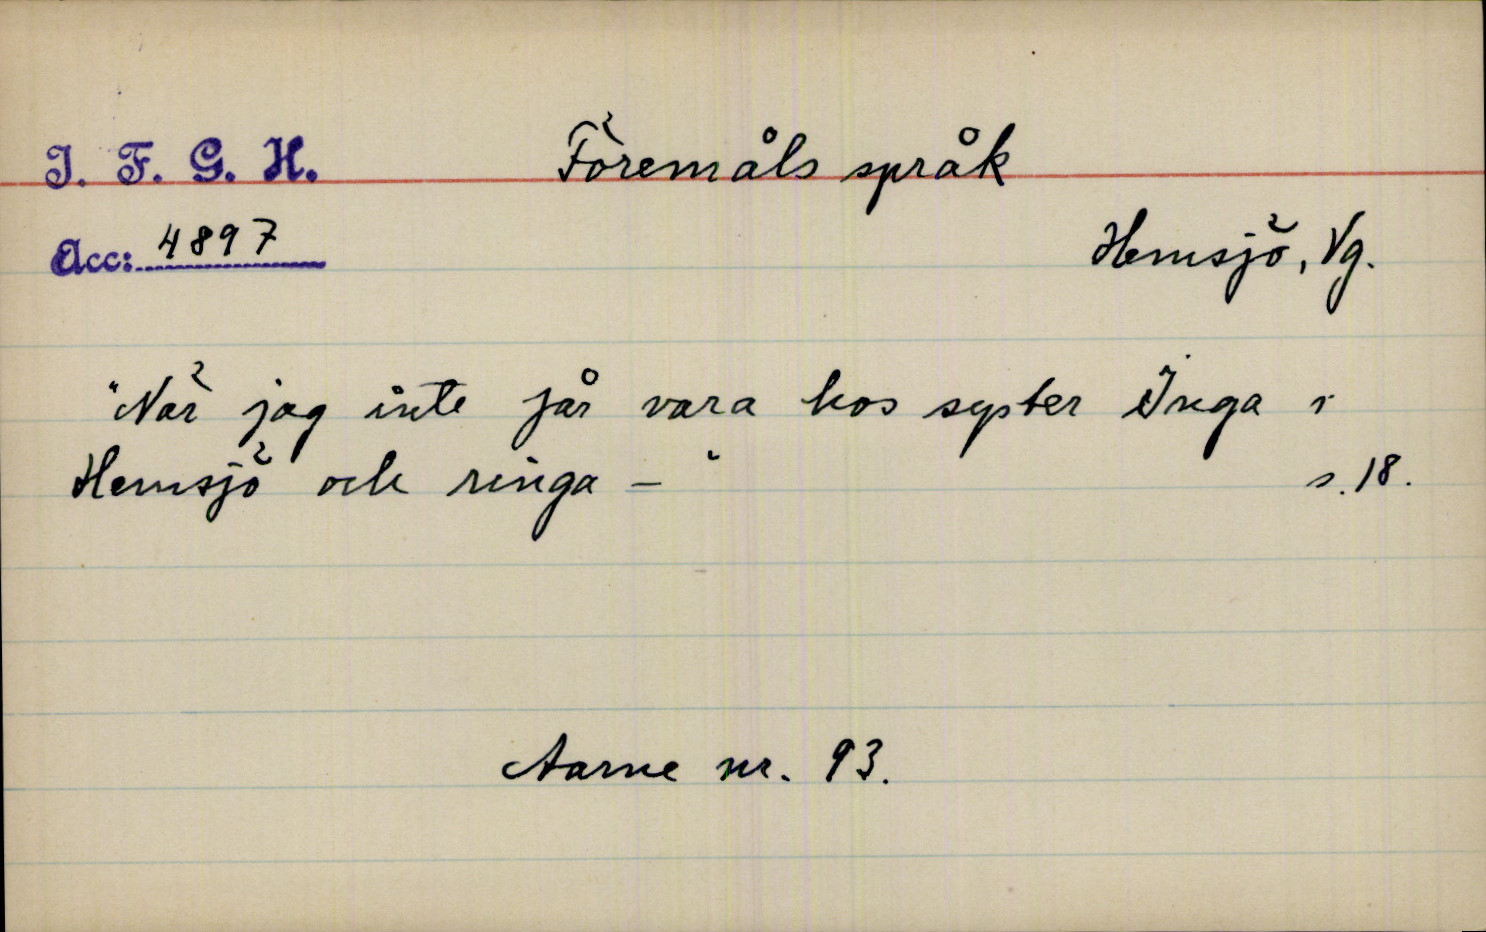 I. F. G. H.
Föremåls språk
Acc: 4897
Hemsjö, Vg.
"När jag inte får vara hos syster Inga i
Hemsjö och ringa — "
s. 18.
Aarne nr. 93.